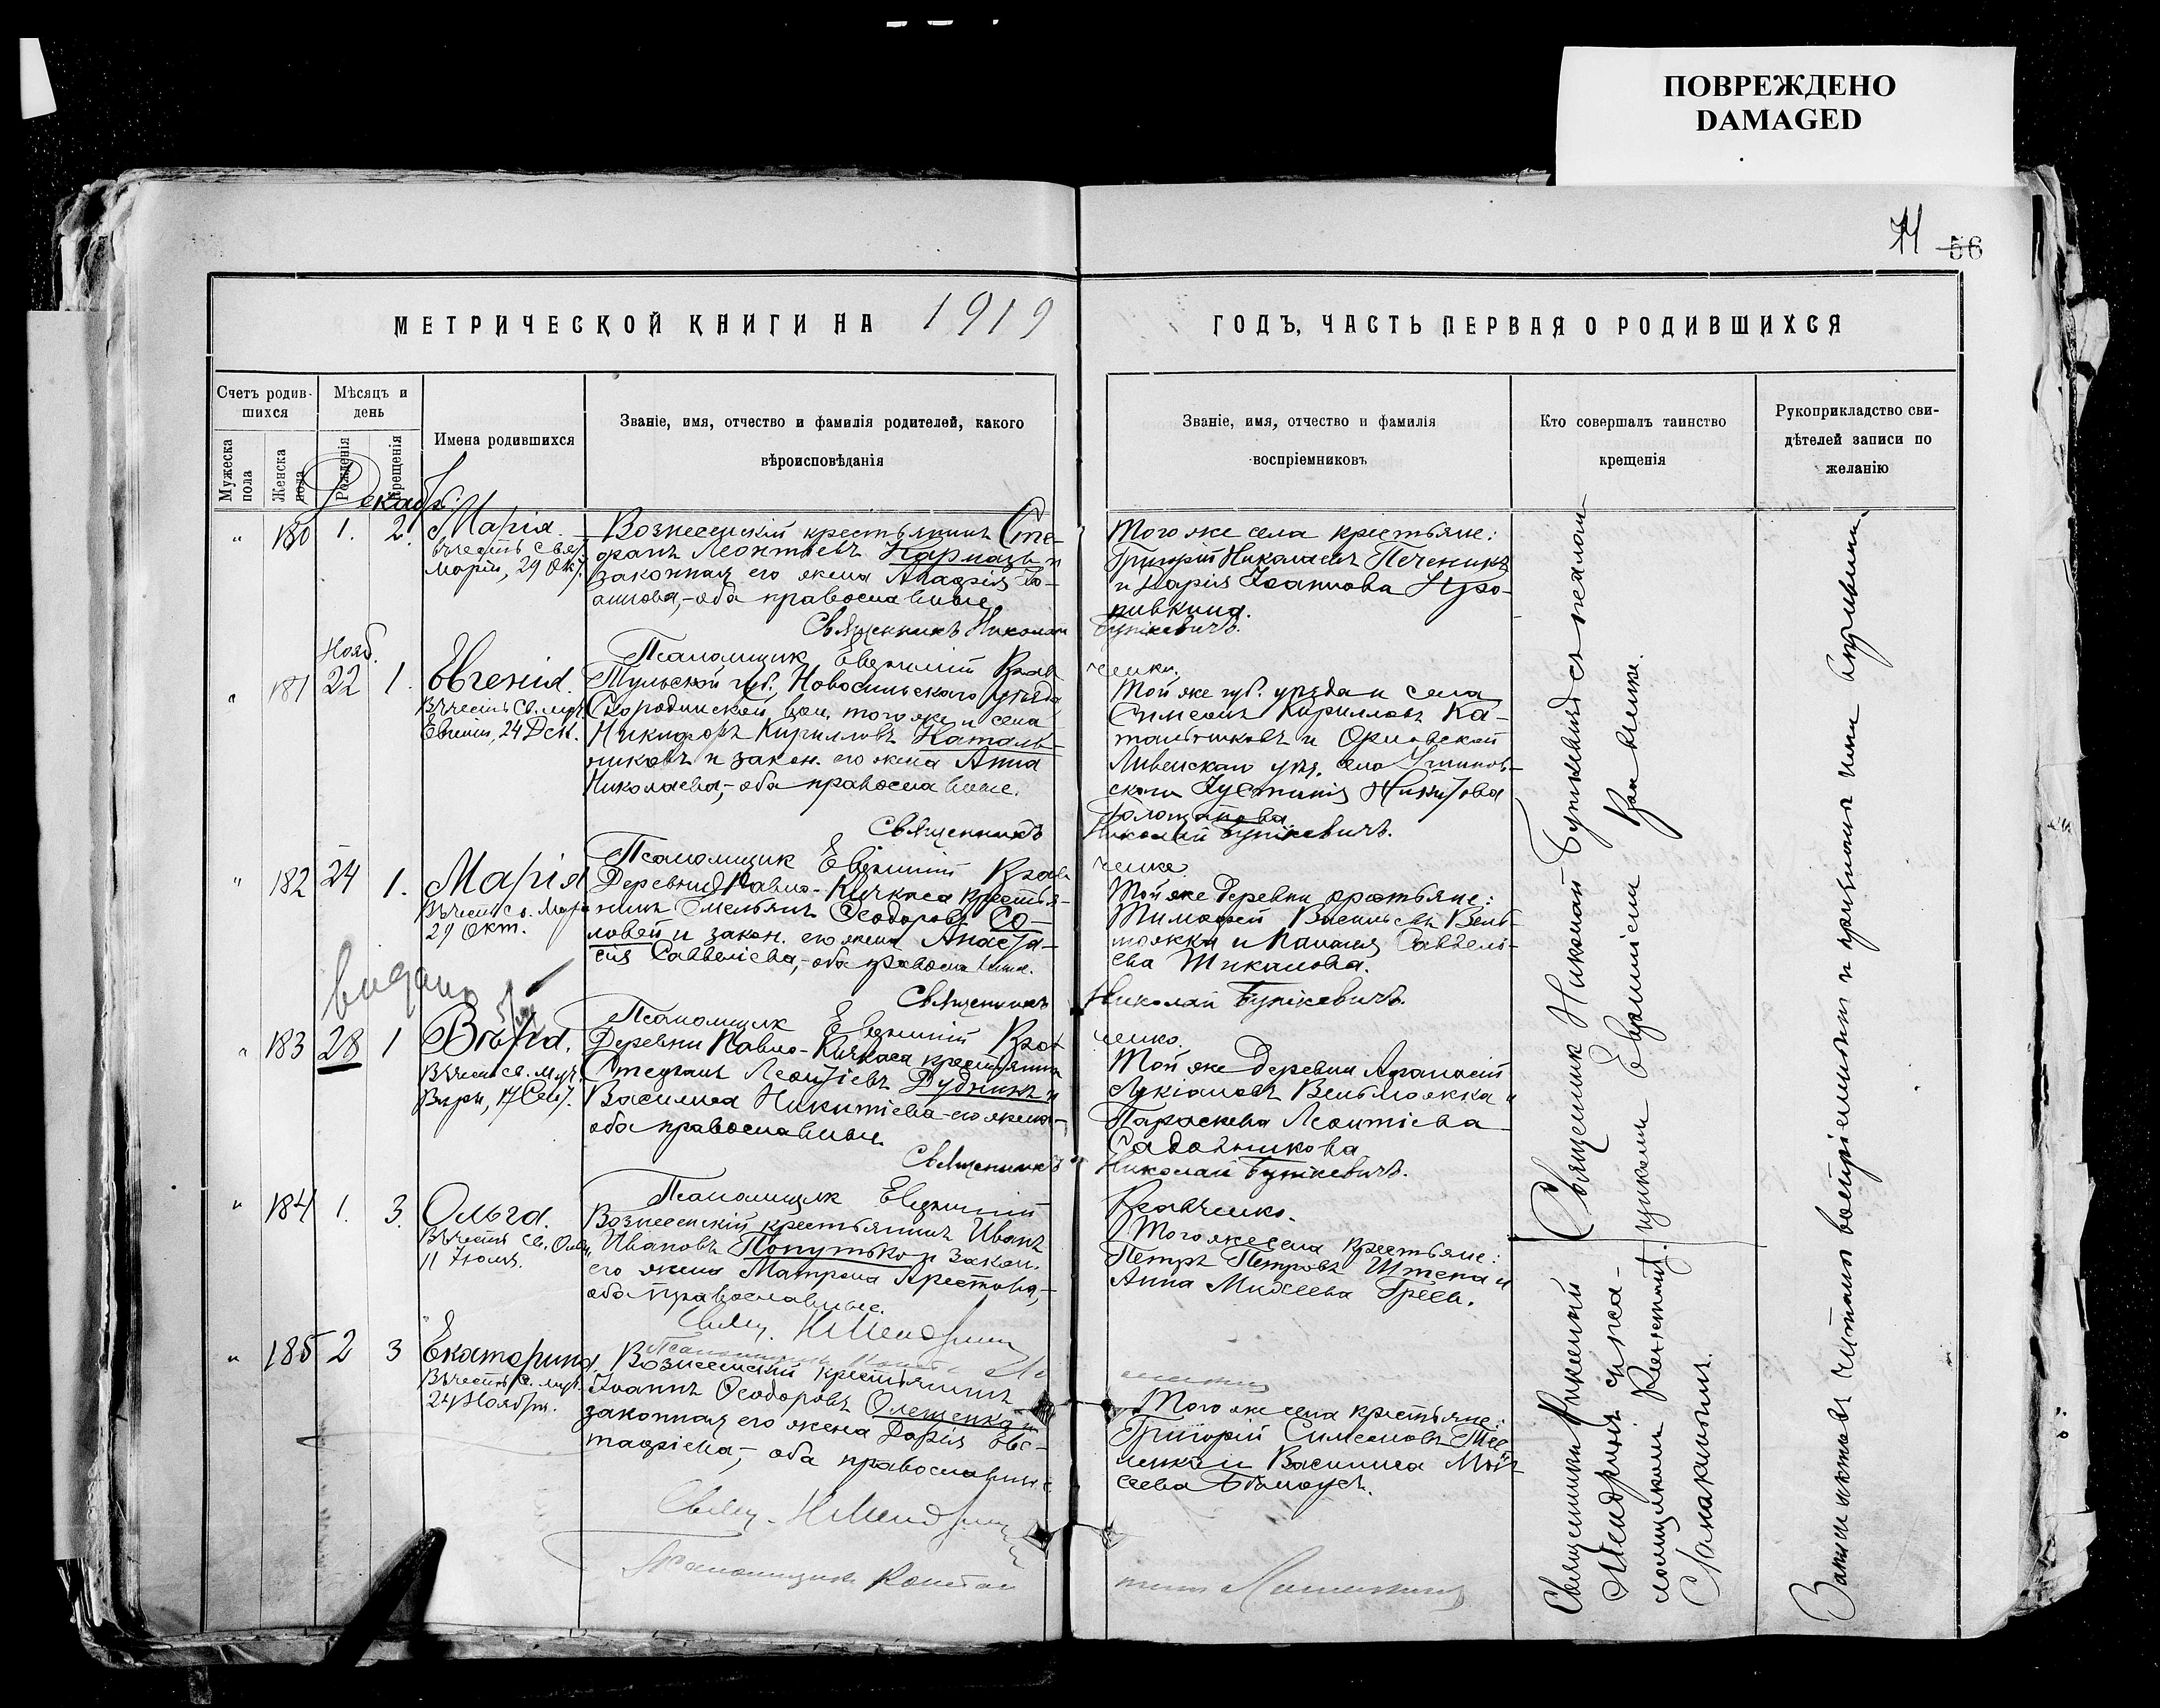 ПОВРЕЖДЕНО
DAMAGED
71 56
МЕТРИЧЕСКОЙ КНИГИ НА 1919
ГОДЪ, ЧАСТЬ ПЕРВАЯ О РОДИВШИХСЯ
Счетъ родив-
шихся
Мужеска пола
Женска пола
Мѣсяцъ и
день
Рожденія
Крещенія
Имена родившихся
Званіе, имя, отчество и фамилія родителей, какого
вѣроисповѣданія
Званіе, имя, отчество и фамилія
воспріемниковъ
Кто совершалъ таинство
крещенія
Рукоприкладство сви-
дѣтелей записи по
желанію
Декабрь
" 180 1. 2. Марія.
въ честь
Маріи, 29 Окт.
Вознесенскій крестьянинъ Сте-
фанъ Леонтьевъ Кармазь и
законная его жена Агафія Іо-
аннова,-оба православные.
Того же села крестьяне:
Григорій Николаевъ Печеникъ
и Марія Іоаннова
Священникъ Николай Буткевичъ.
Псаломщик Евфимій Кравченко.
Нояб.
" 181 22 1. Евгенія.
Въ честь св. муч.
Евгеніи, 24 Дек.
Тульской губ., Новосильскаго уѣзда
Скородинской вол. того же и села
Никифоръ Кирилловъ Каталь-
никовъ и закон. его жена Анна
Николаева,-оба православные.
Той же губ. уѣзда и села
Симеонъ Кирилловъ Ка-
тальниковъ и Орловской
Ливенскаго уѣз. села
Іустинія
Священникъ
Николай Буткевичъ.
Псаломщик Евфимій Кравченко
" 182 24 1. Марія
Въ честь св. Маріи
29 Окт.
Деревни Павло-Кичкаса крестья-
нинъ Емельянъ Ѳеодоровъ Со-
ловей и закон. его жена Анаста-
сія Савельева,-оба православные.
Той же деревни крестьяне:
Тимофей Васильевъ Вель-
можка и Савель-
ева Тикалова.
Священникъ
Николай Буткевичъ.
Псаломщик Евфимій Кравченко.
видано
" 183 28 1 Вѣра.
Въ честь св. муч.
Вѣры, 17 Сент.
Деревни Павло-Кичкаса крестьянинъ
Стефанъ Леонтіевъ Дудникъ и
Василиса Никитіева-его жена-
оба православные.
Той же деревни Афанасій
Лукіановъ Вельможка и
Параскева Леонтіева
Садовникова
Священникъ
Николай Буткевичъ.
Псаломщик Евфимій
Кравченко.
" 184 1. 3. Ольга.
Въ честь св. Ольги,
11 Іюля.
Вознесенскій крестьянинъ Иванъ
Ивановъ Попутько и закон.
его жена Матрона Арестова,-
оба православные.
Того же села крестьяне:
Петръ Петровъ Штепа и
Анна Мидеева Гресь.
Свящ. Н Мендрин
" 185 2 3 Екатерина.
Въ честь св. муч.
24 Ноября.
Вознесенскій крестьянинъ
Іоаннъ Ѳеодоровъ Олещенко и
законная его жена Дарія Евс-
тафіева,- оба православные
Того же села крестьяне:
Григорій Симеоновъ
и Василиса Мои-
сеева Бѣлоусъ.
Свящ. Н Мендрин
Псаломщик Констан
Священник Николай Буткевичъ с псалом-
щиком Евфиміем Кравченко.
Священник
Мендрин с пса-
ломщиком Константин.
Записи актовъ читали воспріемникам и